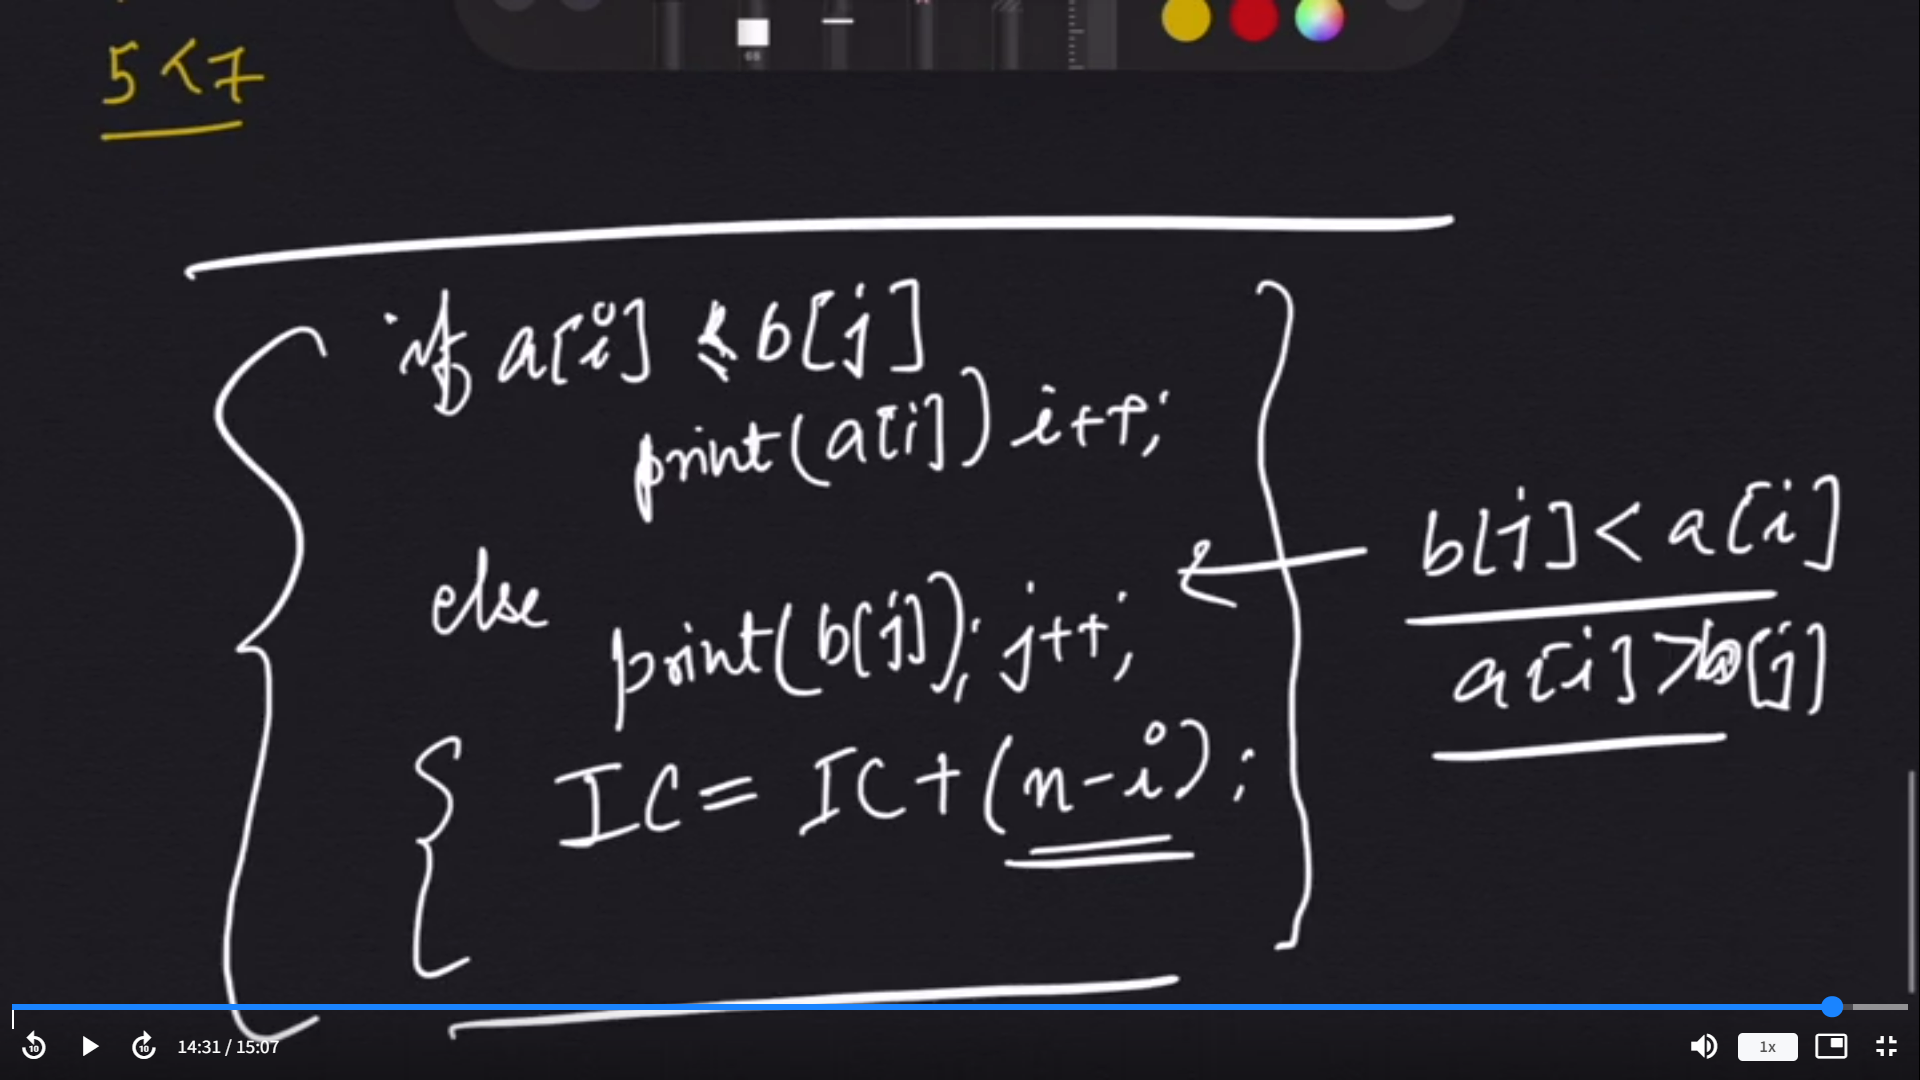 5<7
if a[i] ≤ b[j]
print(a[i]) i++;
else
print(b[j]); j++;
IC = IC + (n-i);
b[j] < a[i]
a[i] > b[j]
10
10
14:31 / 15:07
1x